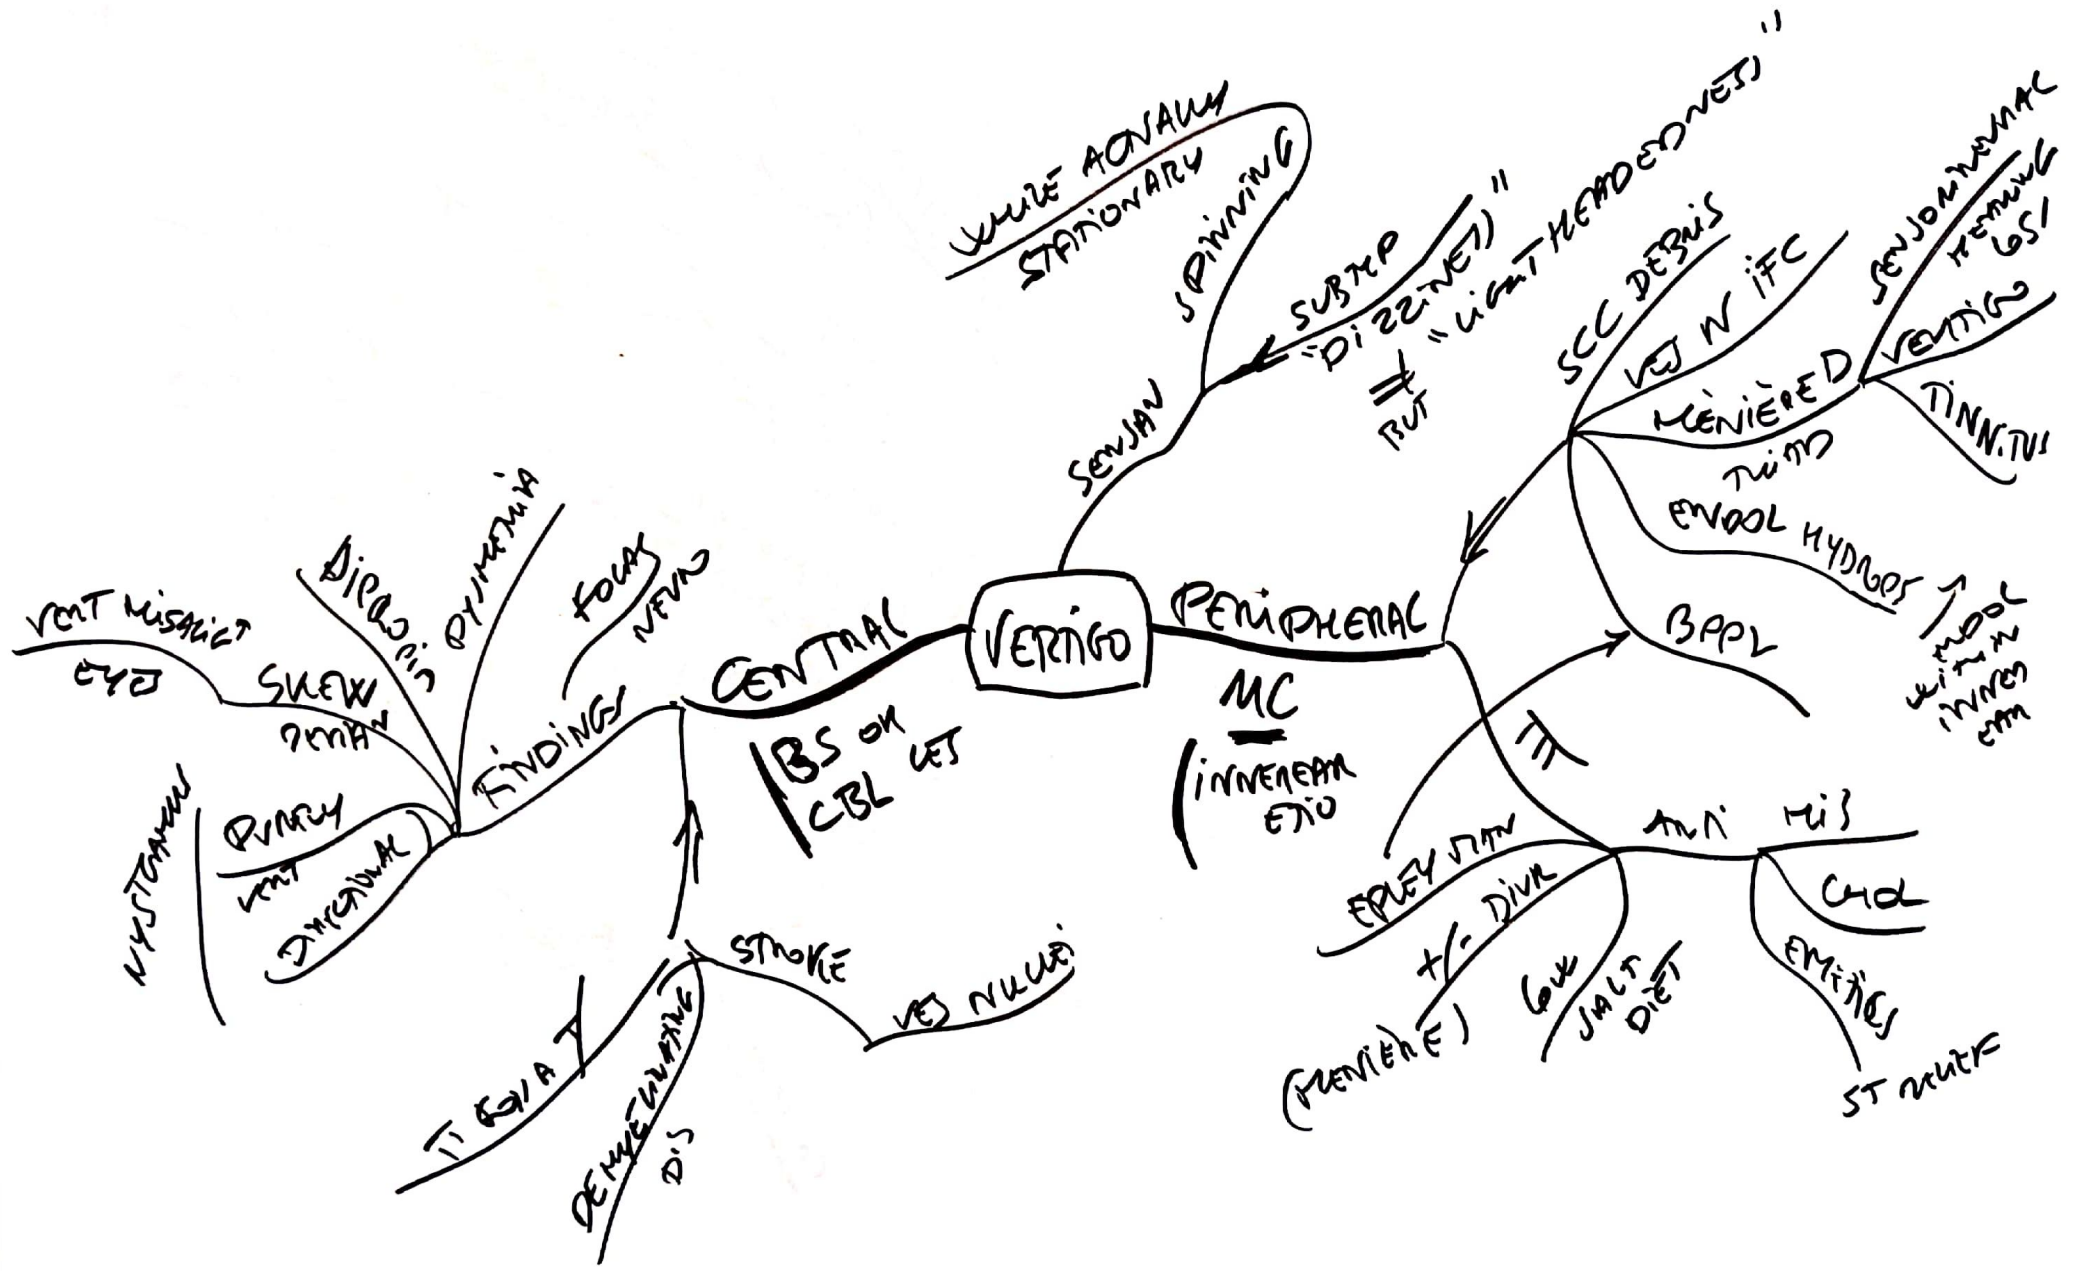 VERTIGO
SENSAN
SPINNING
WHILE
STATIONARY
SUBTYP
"DIZZINESS"
≠ "LIGHTHEADEDNESS"
BUT
PERIPHERAL
MC
(INNER EAR
ETIO
SCC DEBRIS
VES N IFC
MÉNIÈRE D
TRIAD
SENSORINEURAL
HEARING
LOSS
VERTIGO
TINNITUS
ENDOL HYDROPS
↑ ENDOL
WITHIN
INNER
EAR
BPPV
ANTI
HIS
CHOL
EMETICS
ST RELIEF
EPLEY
+/- DIUR
(MENIERE)
LOW
SALT
DIET
CENTRAL
BS OR
CBL LES
FINDINGS
FOCAL
NEURO
DYSMETRIA
DIPLOPIA
SKEW
VERT MISALIGT
EYES
NYSTAGMUS
PURELY
VERT
DIRECTIONAL
STROKE
VES NUCLEI
DEMYELINATING
DIS